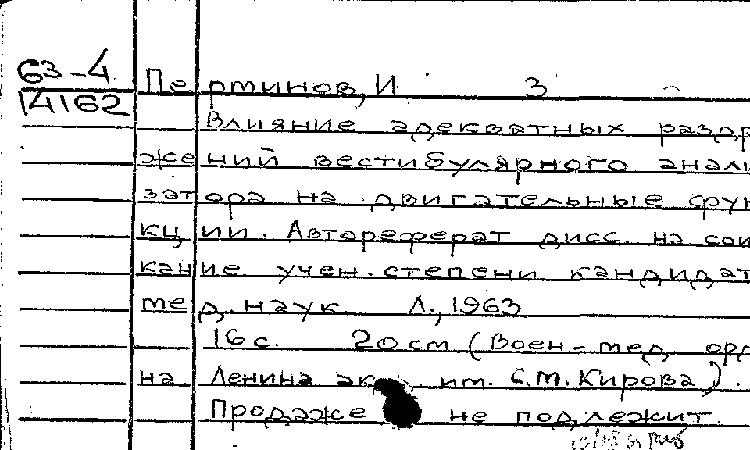 63-4
14162
Перминов, И З
Влияние адекватных раздр
жений вестибулярного анали
затора на двигательные фун
кции. Автореферат дисс. на сои
кание учен. степени кандидат
мед. наук Л., 1963
16 с. 20 см (Воен-мед орд
на Ленина ак им. С.М.Кирова).
Продаже не подлежит.